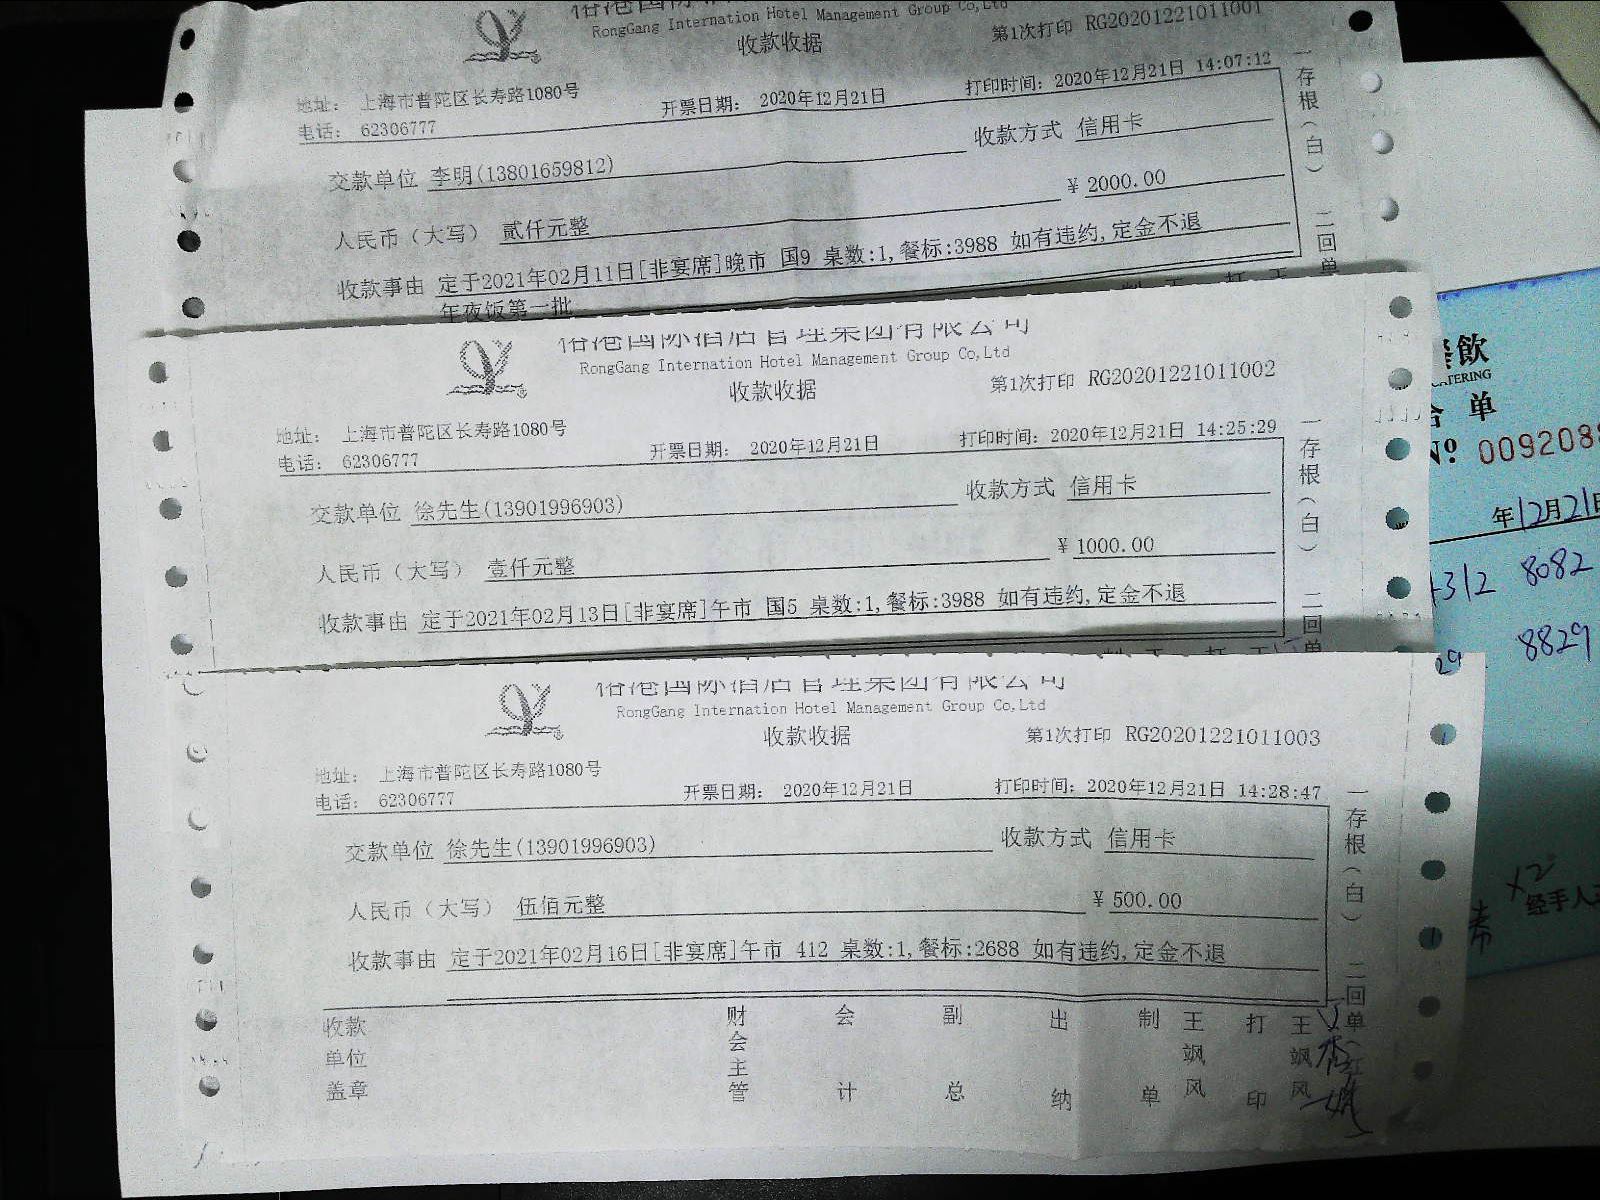 RongGang Internation Hotel Management Group Co,Ltd
收款收据
第1次打印 RG20201221011001
地址： 上海市普陀区长寿路1080号
电话： 62306777
开票日期： 2020年12月21日
打印时间：2020年12月21日 14:07:12
交款单位 李明(13801659812)
收款方式 信用卡
人民币（大写） 贰仟元整
￥2000.00
收款事由 定于2021年02月11日[非宴席]晚市 国9 桌数:1,餐标:3988 如有违约,定金不退
年夜饭第一批
一存根（白） 二回单
裕港国际酒店管理集团有限公司
RongGang Internation Hotel Management Group Co,Ltd
收款收据
第1次打印 RG20201221011002
地址： 上海市普陀区长寿路1080号
电话： 62306777
开票日期： 2020年12月21日
打印时间：2020年12月21日 14:25:29
交款单位 徐先生(13901996903)
收款方式 信用卡
人民币（大写） 壹仟元整
￥1000.00
收款事由 定于2021年02月13日[非宴席]午市 国5 桌数:1,餐标:3988 如有违约,定金不退
一存根（白） 二回单
裕港国际酒店管理集团有限公司
RongGang Internation Hotel Management Group Co,Ltd
收款收据
第1次打印 RG20201221011003
地址： 上海市普陀区长寿路1080号
电话： 62306777
开票日期： 2020年12月21日
打印时间：2020年12月21日 14:28:47
交款单位 徐先生(13901996903)
收款方式 信用卡
人民币（大写） 伍佰元整
￥500.00
收款事由 定于2021年02月16日[非宴席]午市 412 桌数:1,餐标:2688 如有违约,定金不退
一存根（白） 二回单（红
收款单位盖章
财会主管
会计
副总
出纳
制单
王飒风
打印
王飒风
飲
CATERING
单
Nº 009208
年12月21日
312 8082
29 8829
经手人